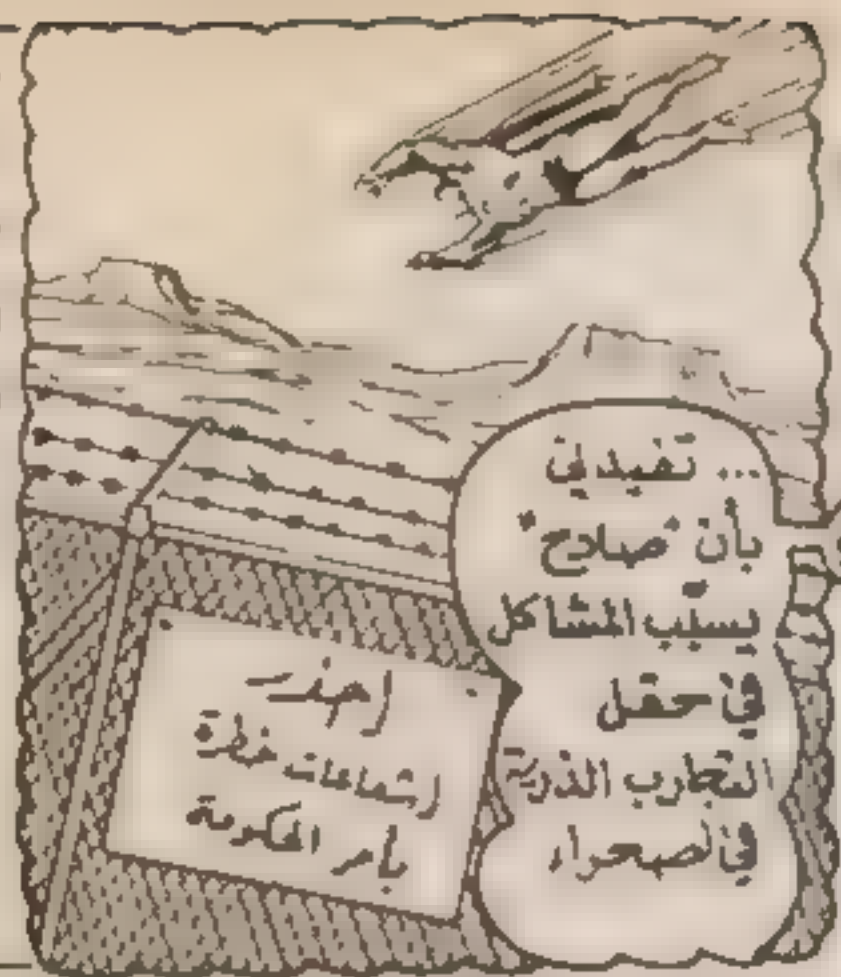 ... تفيدني
بأن "صلاح"
يسبّب المشاكل
في حقل
التجارب الذرية
في الصحراء
إحذر
إشعاعات خطرة
بأمر الحكومة